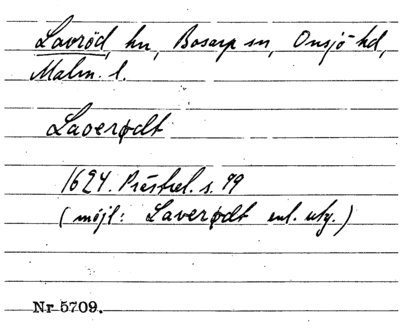 Lavröd, hn, Bosarp sn, Onsjö hd,
Malm. l.
Laoerødt
1624. Prästrel. s. 99
(möjl: Laverødt enl. utg.)
Nr 5709.